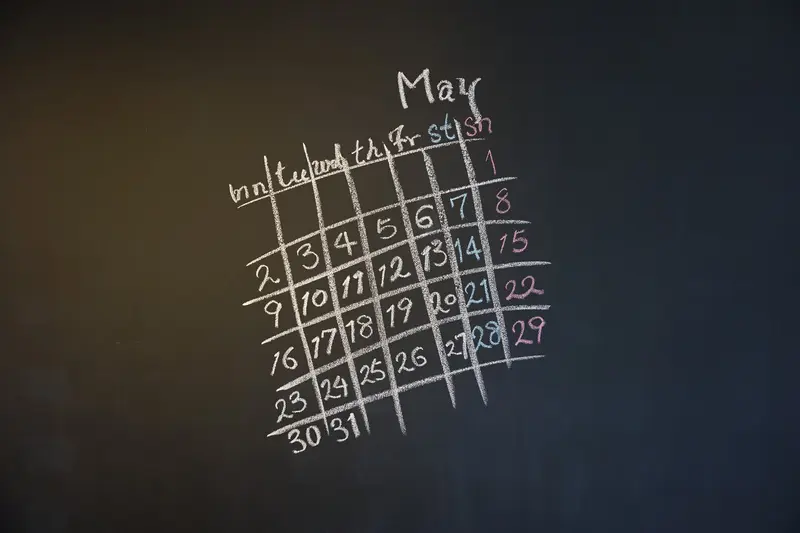 May
mn tu wd th Fr st sn
1
2 3 4 5 6 7 8
9 10 11 12 13 14 15
16 17 18 19 20 21 22
23 24 25 26 27 28 29
30 31